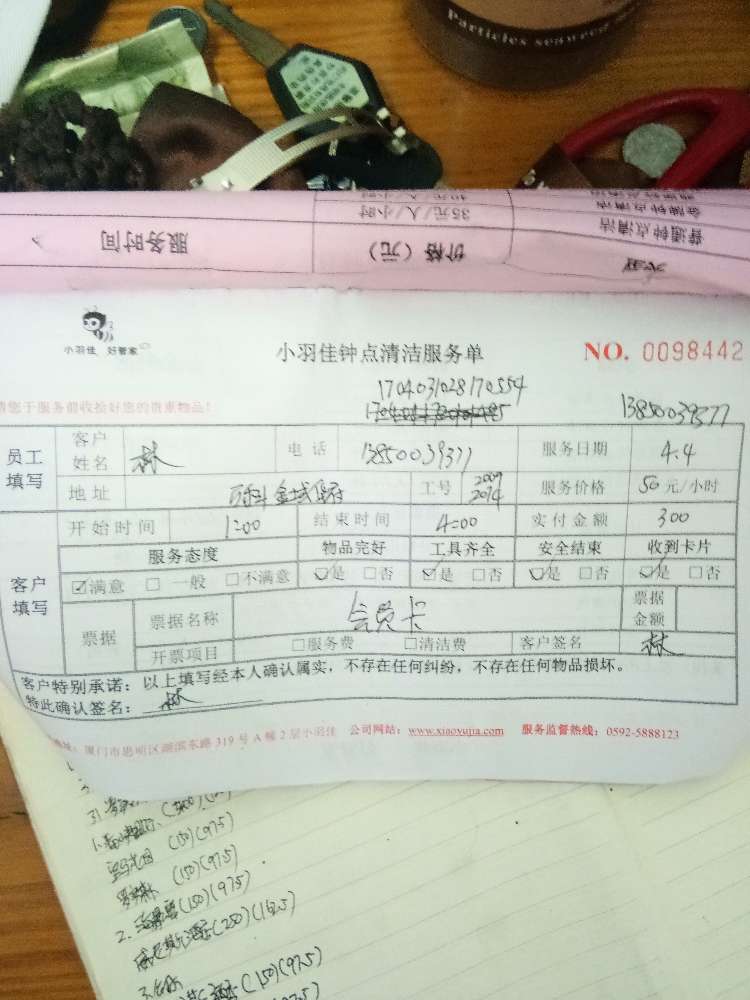 Particles seaweed
35元/人/小时
普通钟点清洁
服务时间
价格（元）
小羽佳 好管家
小羽佳钟点清洁服务单
NO. 0098442
1704031028170554
请您于服务前收拾好您的贵重物品！
13850039377
员工填写
客户姓名 林 电话 13850039377 服务日期 4.4
地址 工号 2009 2014 服务价格 50元/小时
客户填写
开始时间 1:00 结束时间 4:00 实付金额 300
服务态度 物品完好 工具齐全 安全结束 收到卡片
☑满意 □一般 □不满意 ☑是 □否 ☑是 □否 ☑是 □否 ☑是 □否
票据 票据名称 会员卡 票据金额
开票项目 □服务费 □清洁费 客户签名 林
客户特别承诺：以上填写经本人确认属实，不存在任何纠纷，不存在任何物品损坏。
特此确认签名： 林
地址：厦门市思明区湖滨东路319号A幢2层小羽佳 公司网站：www.xiaoyujia.com 服务监督热线：0592-5888123
(150)(97.5)
(150)(97.5)
2. (150)(97.5)
(250)(162.5)
(150)(97.5)